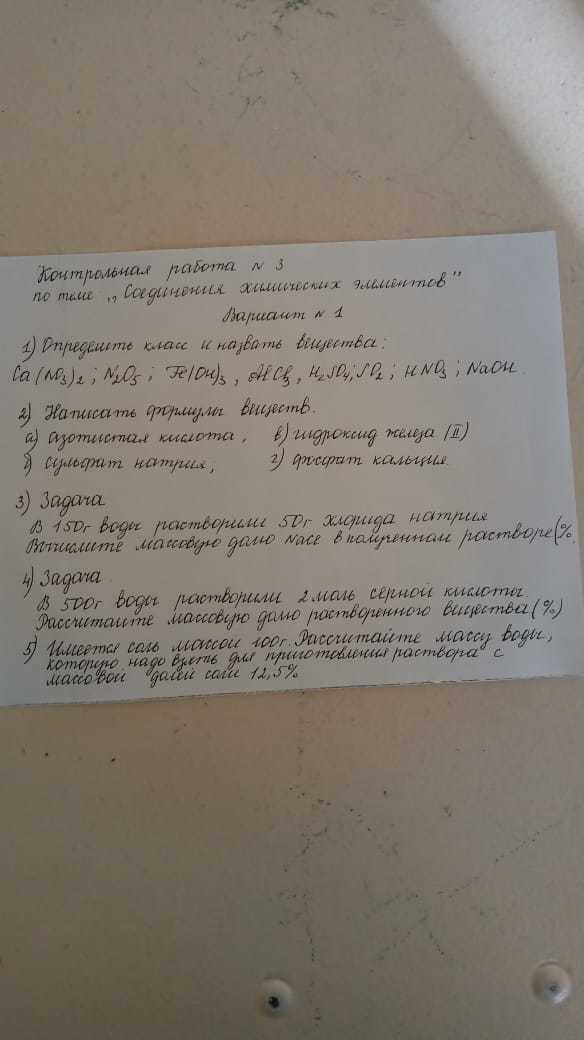 Контрольная работа N 3
по теме „Соединения химических элементов"
Вариант N 1
1) Определить класс и назвать вещества:
Ca(NO3)2; N2O5; Fe(OH)3, AlCl3, H2SO4; SO2; HNO3; NaOH.
2) Написать формулы веществ.
а) азотистая кислота, в) гидроксид железа (II)
б) сульфат натрия; г) фосфат кальция.
3) Задача
В 150г воды растворили 50г хлорида натрия
Вычислите массовую долю NaCl в полученном растворе(%
4) Задача.
В 500г воды растворили 2 моль серной кислоты
Рассчитайте массовую долю растворенного вещества (%)
5) Имеется соль массой 100г. Рассчитайте массу воды,
которую надо взять для приготовления раствора с
массовой долей соли 12,5%